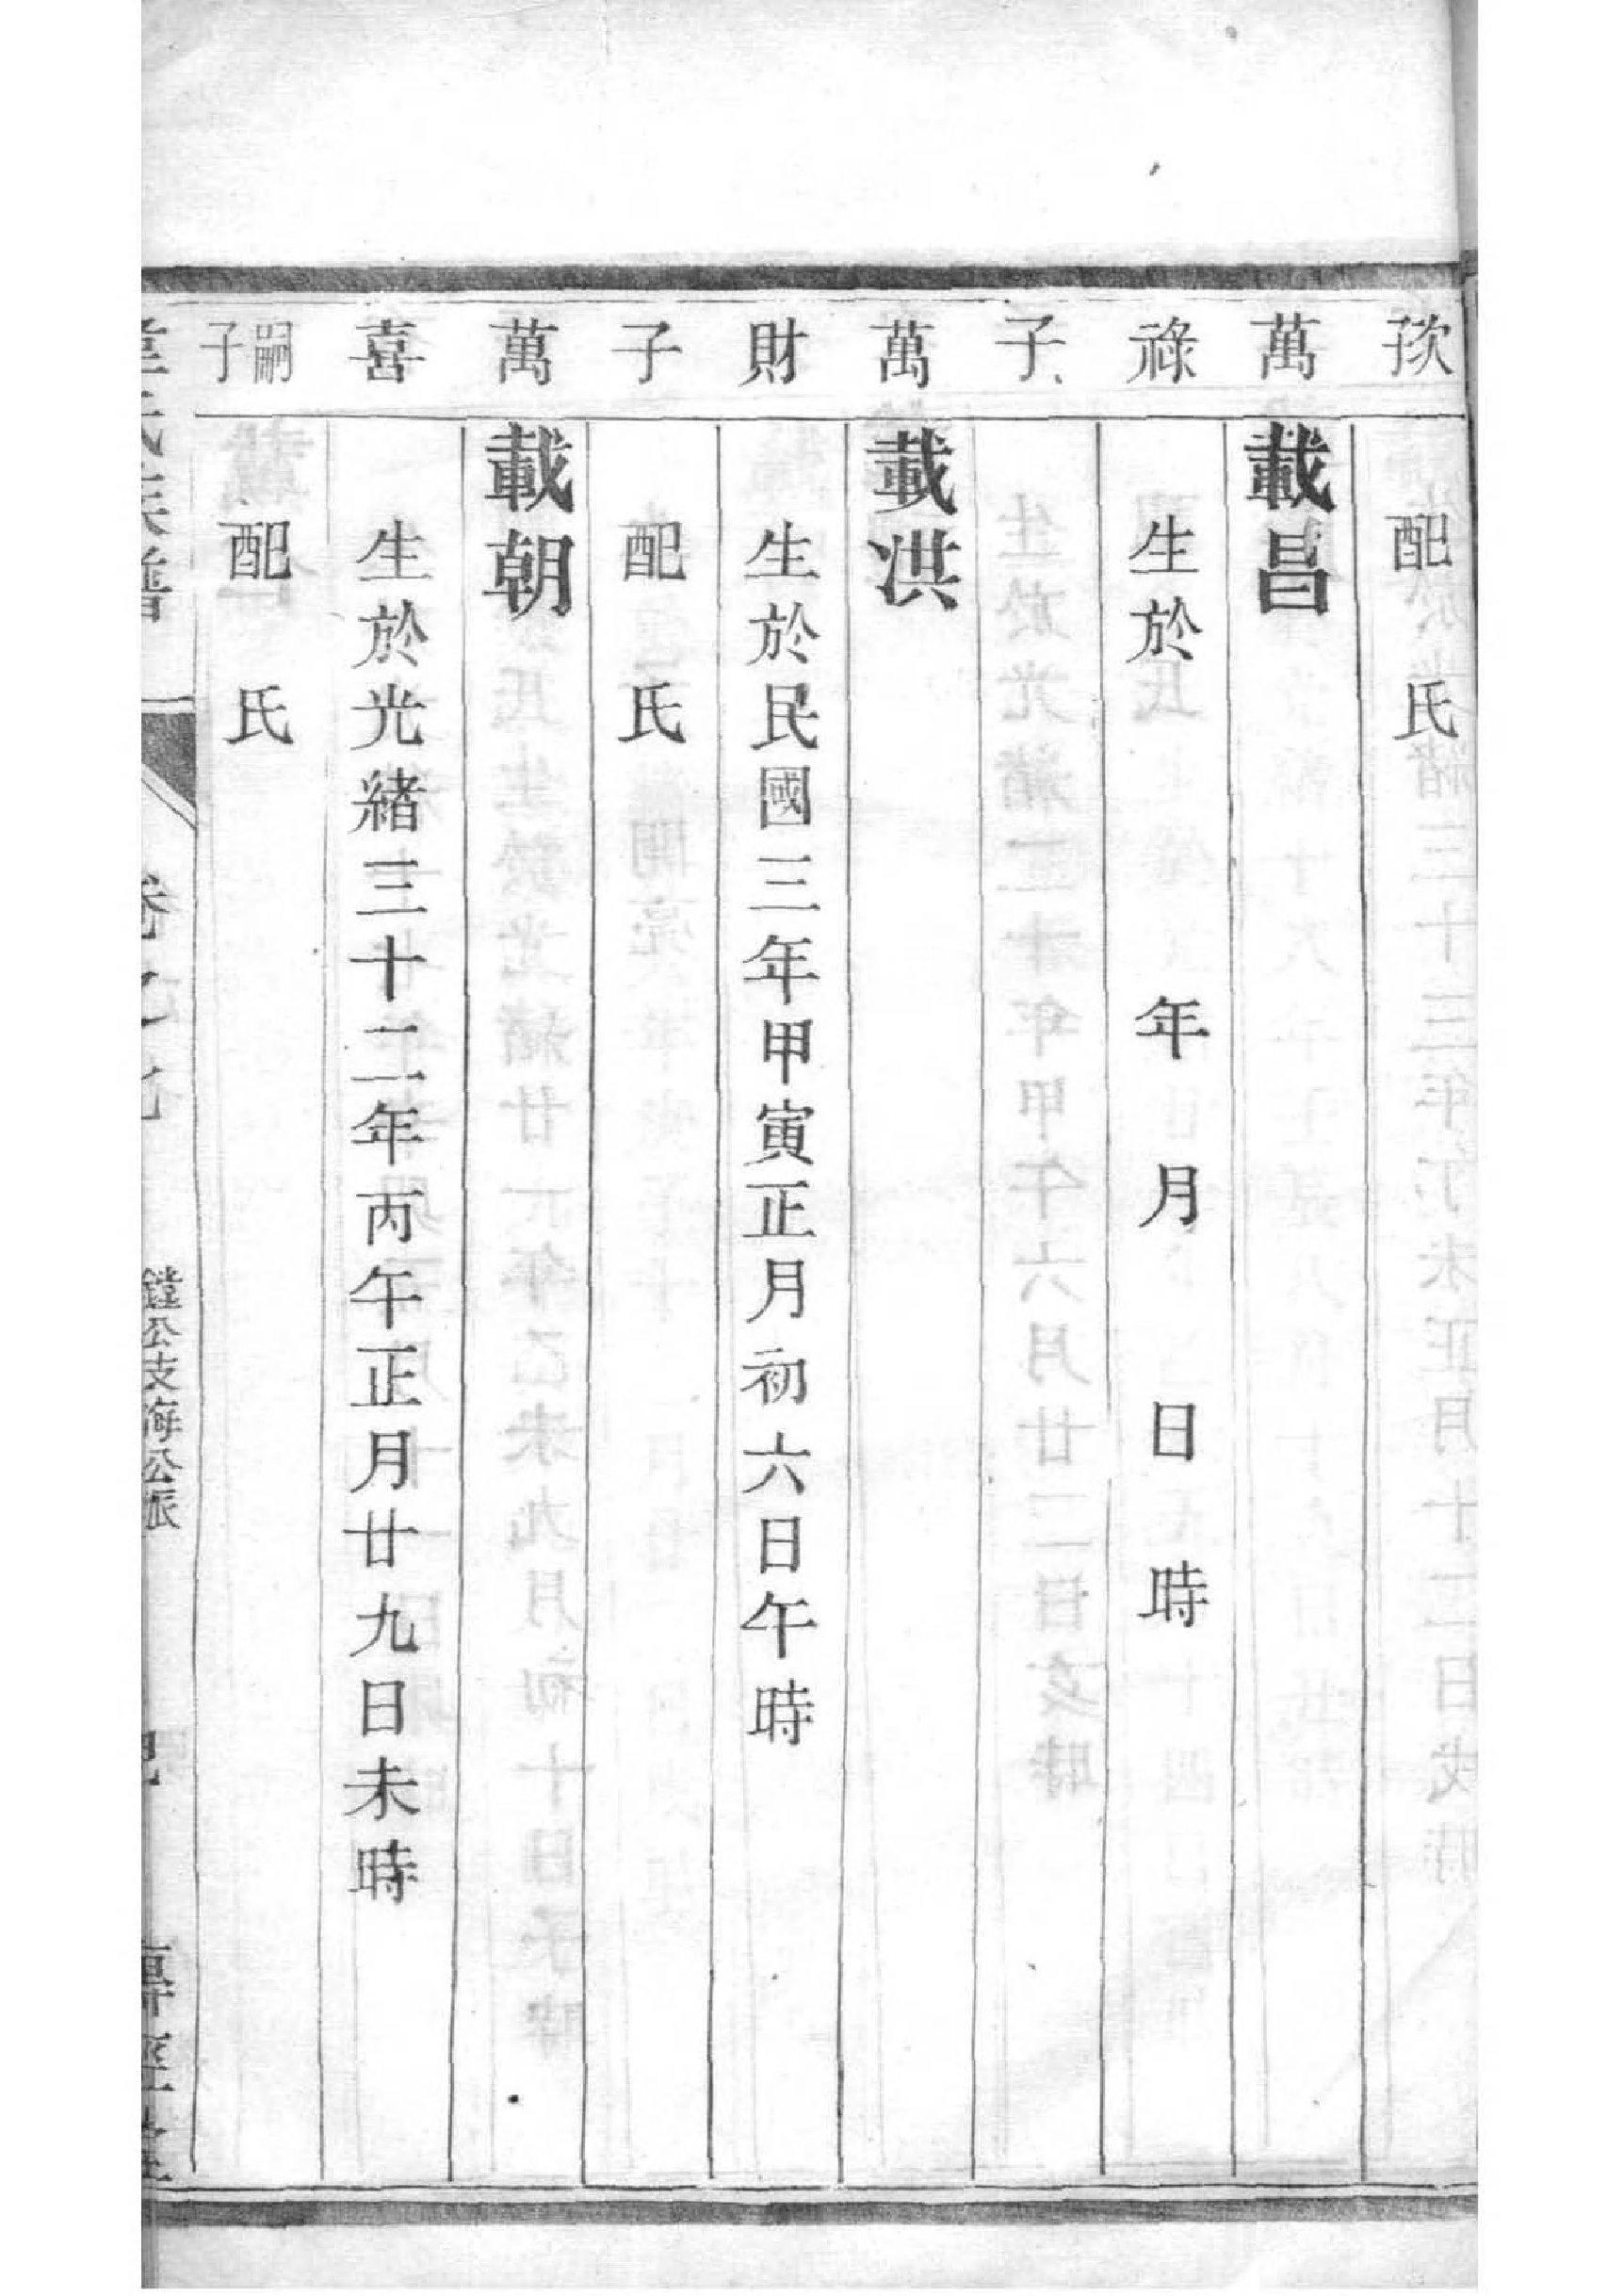 配 氏
萬 載昌
祿 生於 年 月 日 時
子
萬 載洪
財 生於民國三年甲寅正月初六日午時
子 配 氏
萬 載朝
喜 生於光緒三十二年丙午正月廿九日未時
嗣子 配 氏
鏜公支海公派